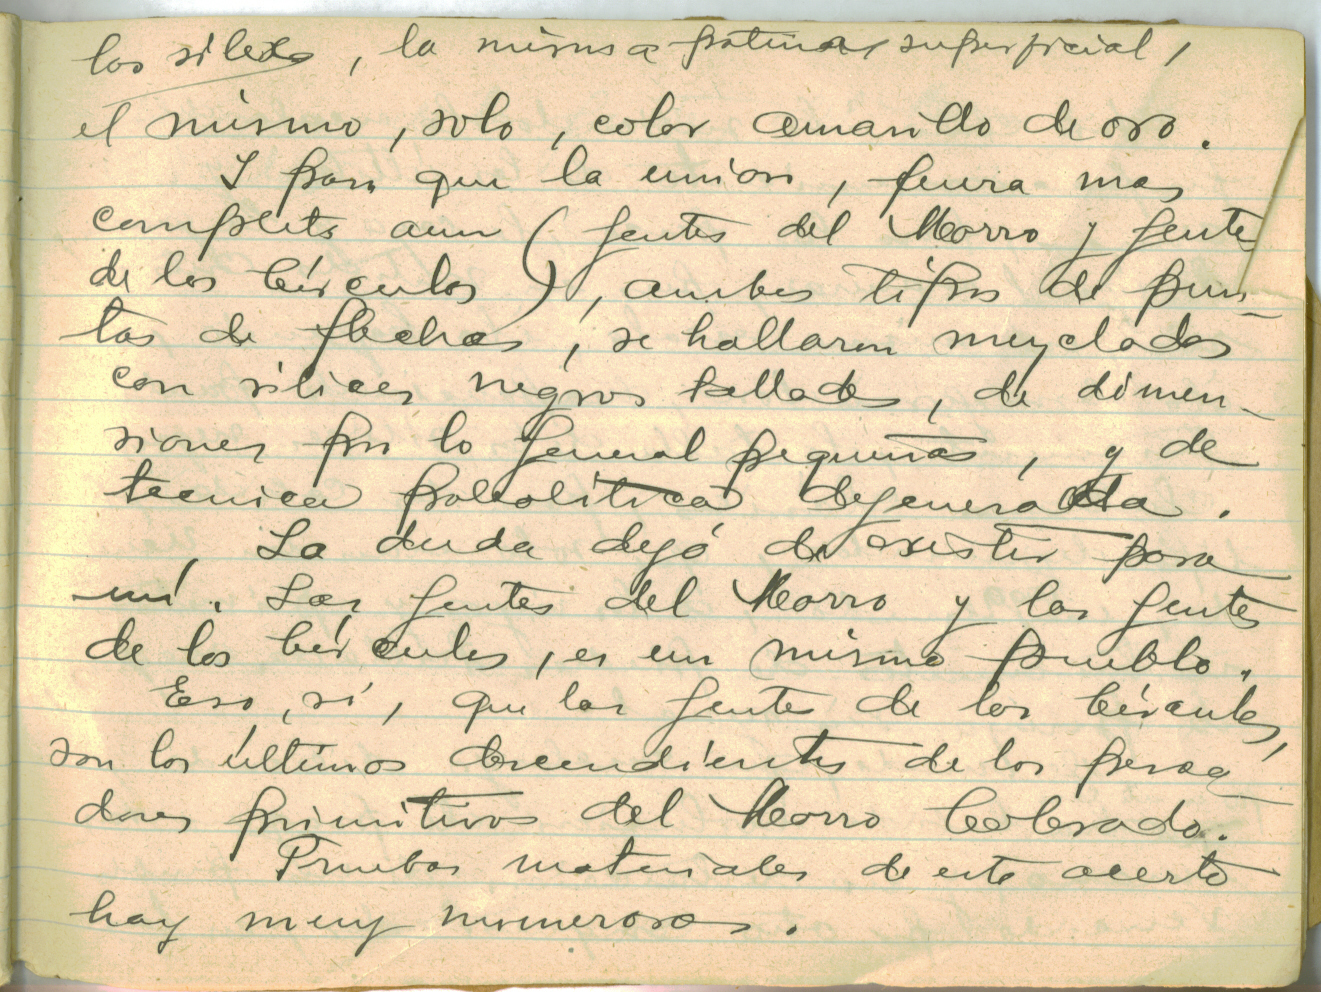 los silex , la misma patina, superficial,
el mismo, solo, color amarillo de oro.
I para que la union, fuera mas
completa aun ( gentes del Morro y gentes
de los Círculos ) , ambos tipos de pun-
tas de flechas, se hallaron mezclados
con silices negros tallados, de dimen-
siones por lo general pequeñas, y de
tecnica paleolitica degenerada.
La duda dejó de existir para
mí. Las gentes del Morro y las gentes
de los Círculos, es un mismo pueblo.
Eso, sí, que las gentes de los Círculos,
son los últimos descendientes de los pesca-
dores primitivos del Morro Colorado.
Pruebas materiales de este acerto
hay muy numerosas.